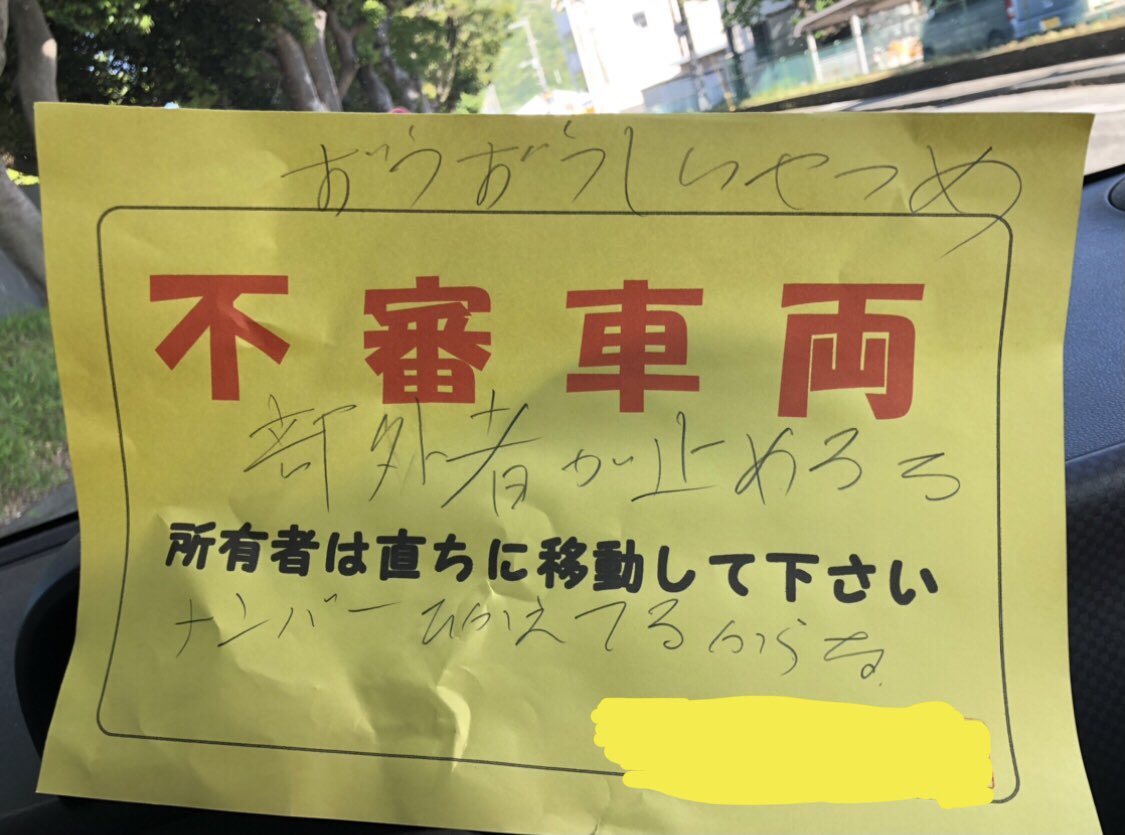 ずうずうしいやつめ
不審車両
部外者が止めろろ
所有者は直ちに移動して下さい
ナンバーひかえてるからな